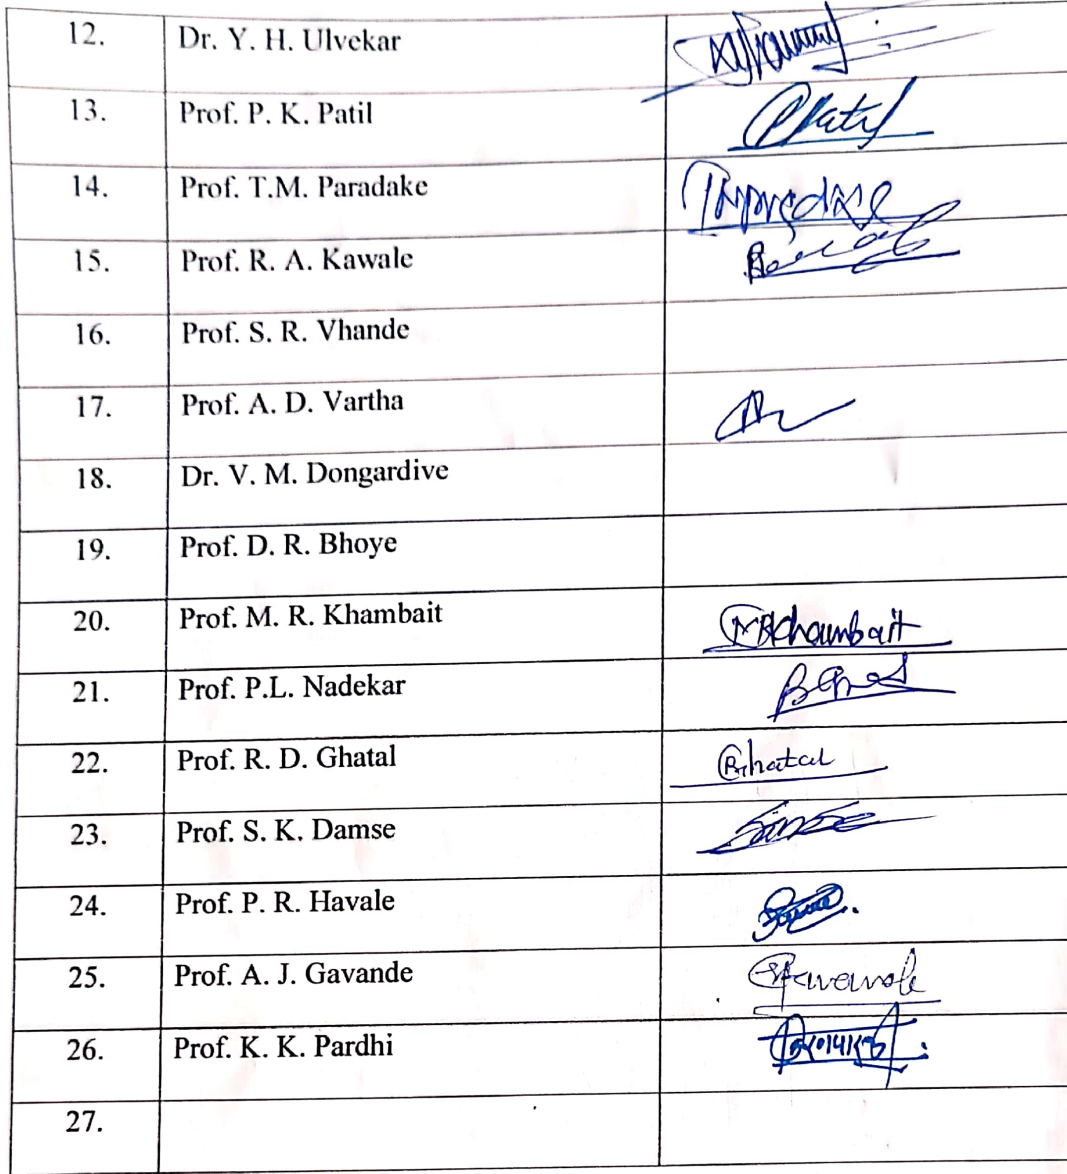 12. Dr. Y. H. Ulvekar
13. Prof. P. K. Patil PKatil
14. Prof. T.M. Paradake
15. Prof. R. A. Kawale
16. Prof. S. R. Vhande
17. Prof. A. D. Vartha
18. Dr. V. M. Dongardive
19. Prof. D. R. Bhoye
20. Prof. M. R. Khambait MRKhambait
21. Prof. P.L. Nadekar
22. Prof. R. D. Ghatal Ghatal
23. Prof. S. K. Damse
24. Prof. P. R. Havale
25. Prof. A. J. Gavande
26. Prof. K. K. Pardhi
27.